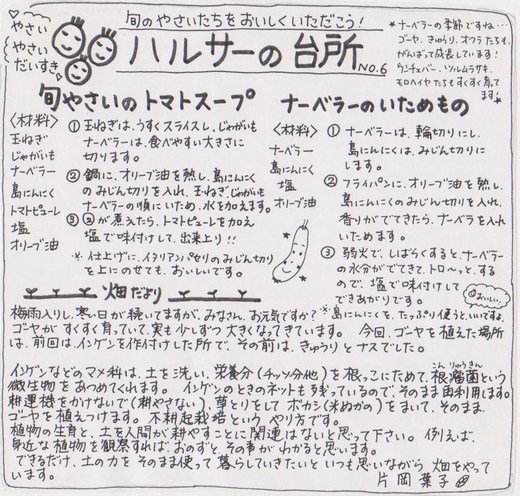 やさい
やさい
だいすき
旬のやさいたちをおいしくいただこう!
ハルサーの台所
No.6
*ナーベラーの季節ですね…
ゴーヤ、きゅうり、オクラたちも
がんばって成長しています!
ウンチェバー、ツルムラサキ、
モロヘイヤたちもすくすく育て
ます!
旬やさいのトマトスープ
<材料>
玉ねぎ
じゃがいも
ナーベラー
島にんにく
トマトピューレ
塩
オリーブ油
① 玉ねぎは、うすくスライスし、じゃがいも
ナーベラーは、食べやすい大きさに
切ります。
② 鍋に、オリーブ油を熱し、島にんにく
のみじん切りを入れ、玉ねぎ、じゃがいも
ナーベラーの順にいため、水を加えます。
③ ②が煮えたら、トマトピューレを加え
塩で味付けして、出来上り!!
※仕上げに、イタリアンパセリのみじん切り
を上にのせても、おいしいです。
ナーベラーのいためもの
<材料>
ナーベラー
島にんにく
塩
オリーブ油
① ナーベラーは、輪切りにし、
島にんにくは、みじん切りに
します。
② フライパンに、オリーブ油を熱し、
島にんにくのみじん切りを入れ、
香りがでてきたら、ナーベラを入れ
いためます。
③ 弱火で、しばらくすると、ナーベラー
の水分がでてきて、トロ〜ッと、する
ので、塩で味付けして
できあがりです。
おいしい。
※島にんにくを、たっぷり使うと、いいですよ。
畑だより
梅雨入りし、寒い日が続いてますが、みなさん、お元気ですか?
ゴーヤがすくすく育っていて、実も少しずつ大きくなってきています。 今回、ゴーヤを植えた場所
は、前回は、インゲンを作付けした所で、その前は、きゅうりとナスでした。
インゲンなどのマメ科は、土を洗い、栄養分(チッソ分他)を根っこにためて、根瘤菌という
こんりゅうきん
微生物をあつめてくれます。 インゲンのときのネットも残っているので、そのまま再利用します。
耕運機をかけないで(耕やさない)、草とりをしてボカシ(米ぬかの)をまいて、そのまま
ゴーヤを植えつけます。不耕起栽培というやり方です。
植物の生育と、土を人間が耕やすことに関連はないと思って下さい。例えば、
身近な植物を観察すれば、おのずと、その事がわかると思います。
できるだけ、土の力をそのまま使って暮らしていきたいといつも思いながら畑をやって
います。
片岡葉子